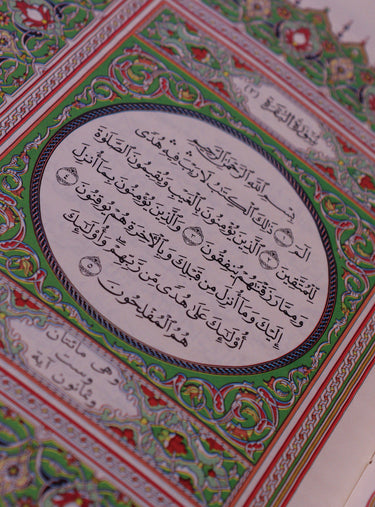 (٢) سُورَةُ الْبَقَرَةِ
بِسْمِ اللَّهِ الرَّحْمَٰنِ الرَّحِيمِ
الٓمٓ ١ ذَٰلِكَ الْكِتَٰبُ لَا رَيْبَ فِيهِ هُدًى
لِّلْمُتَّقِينَ ٢ الَّذِينَ يُؤْمِنُونَ بِالْغَيْبِ وَيُقِيمُونَ الصَّلَوٰةَ
وَمِمَّا رَزَقْنَٰهُمْ يُنفِقُونَ ٣ وَالَّذِينَ يُؤْمِنُونَ بِمَآ أُنزِلَ
إِلَيْكَ وَمَآ أُنزِلَ مِن قَبْلِكَ وَبِالْءَاخِرَةِ هُمْ يُوقِنُونَ ٤
أُو۟لَٰٓئِكَ عَلَىٰ هُدًى مِّن رَّبِّهِمْ وَأُو۟لَٰٓئِكَ
هُمُ الْمُفْلِحُونَ ٥
وهي مائتان
وست
وثمانون آية